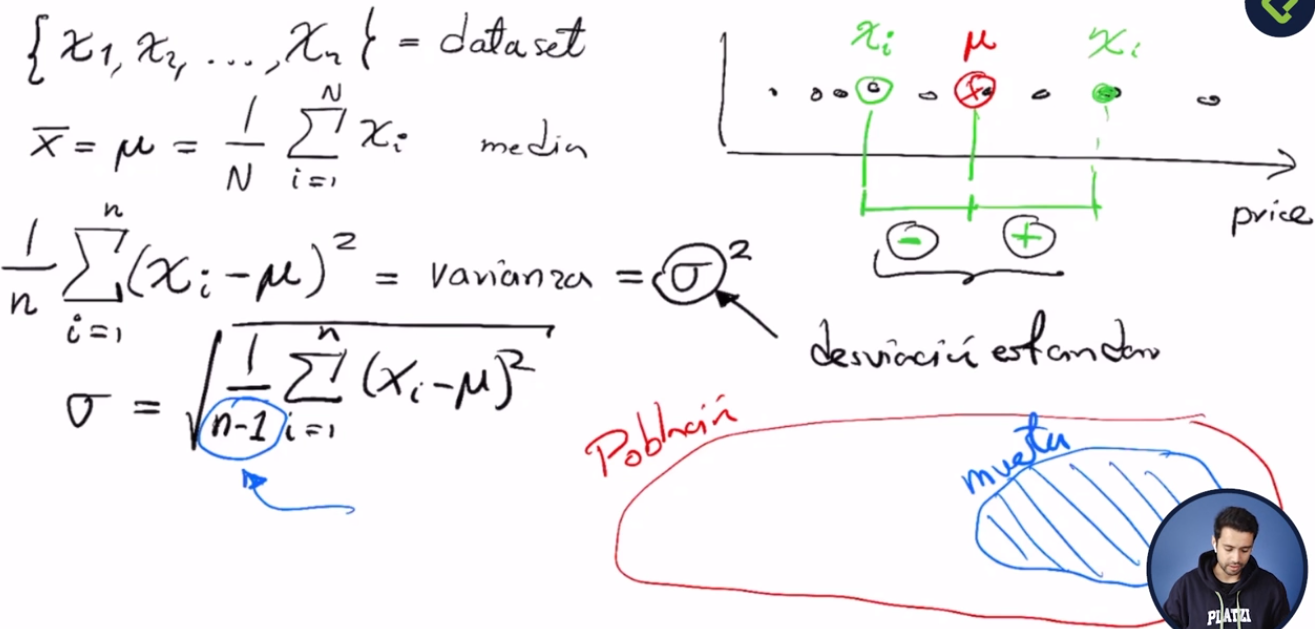 {x₁, x₂, ..., xₙ} = dataset
x̄ = μ = 1/N ∑ᵢ₌₁ᴺ xᵢ media
1/n ∑ᵢ₌₁ⁿ (xᵢ - μ)² = varianza = σ²
desviación estandar
σ = √(1/(n-1) ∑ᵢ₌₁ⁿ (xᵢ - μ)²)
xᵢ μ xᵢ
price
- +
Población
muestra
PLATZI